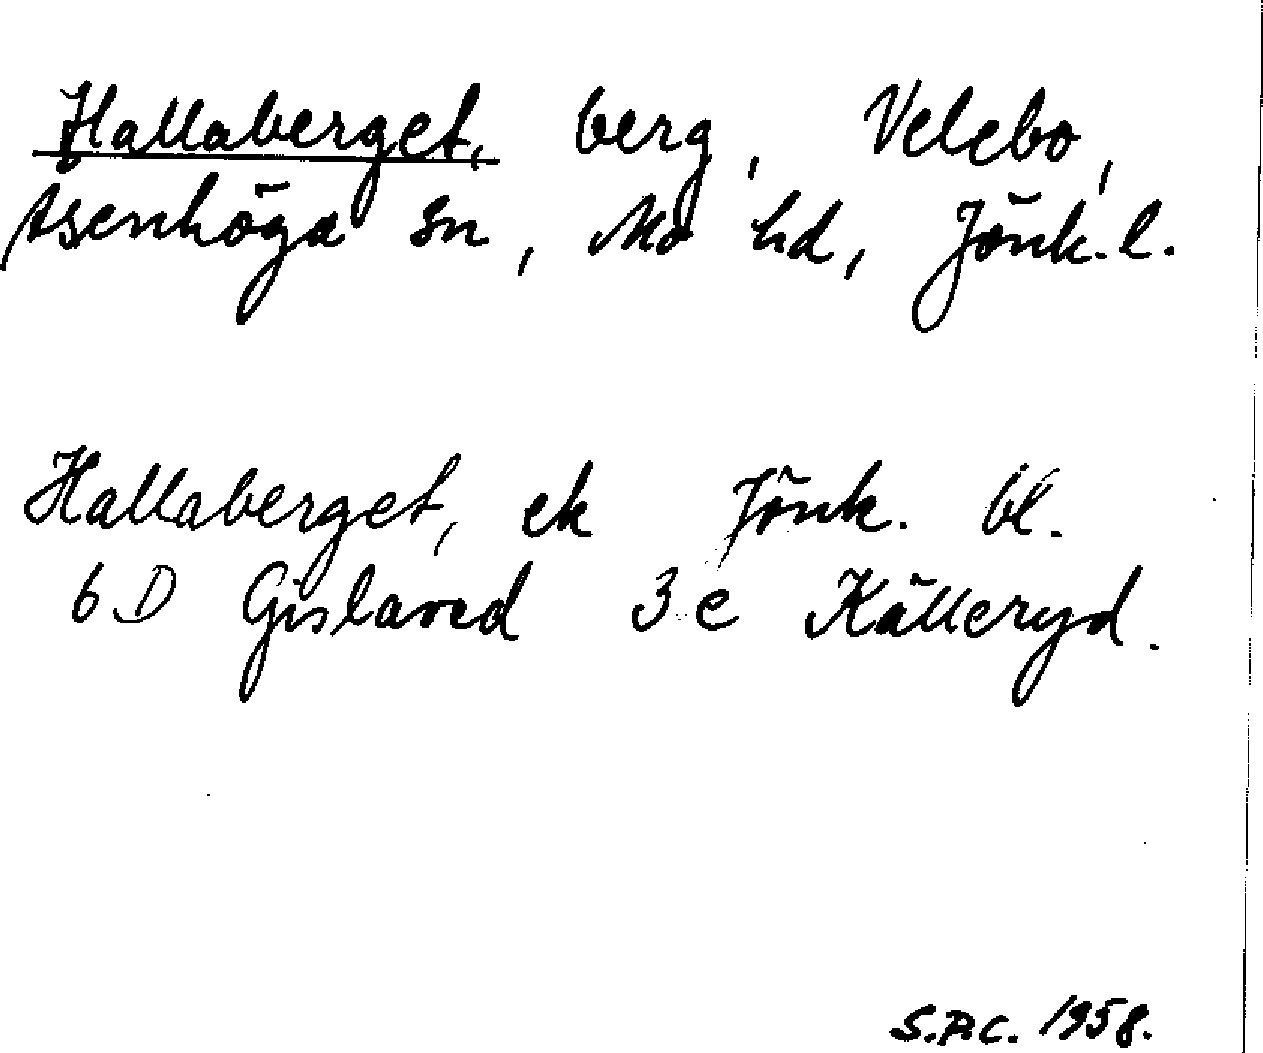 Hallaberget, berg, Velebo,
Åsenhöga sn, Mo hd, Jönk. l.
Hallaberget, ek Jönk. bl.
6 D Gislaved 3 e Källeryd.
S.P.C. 1958.